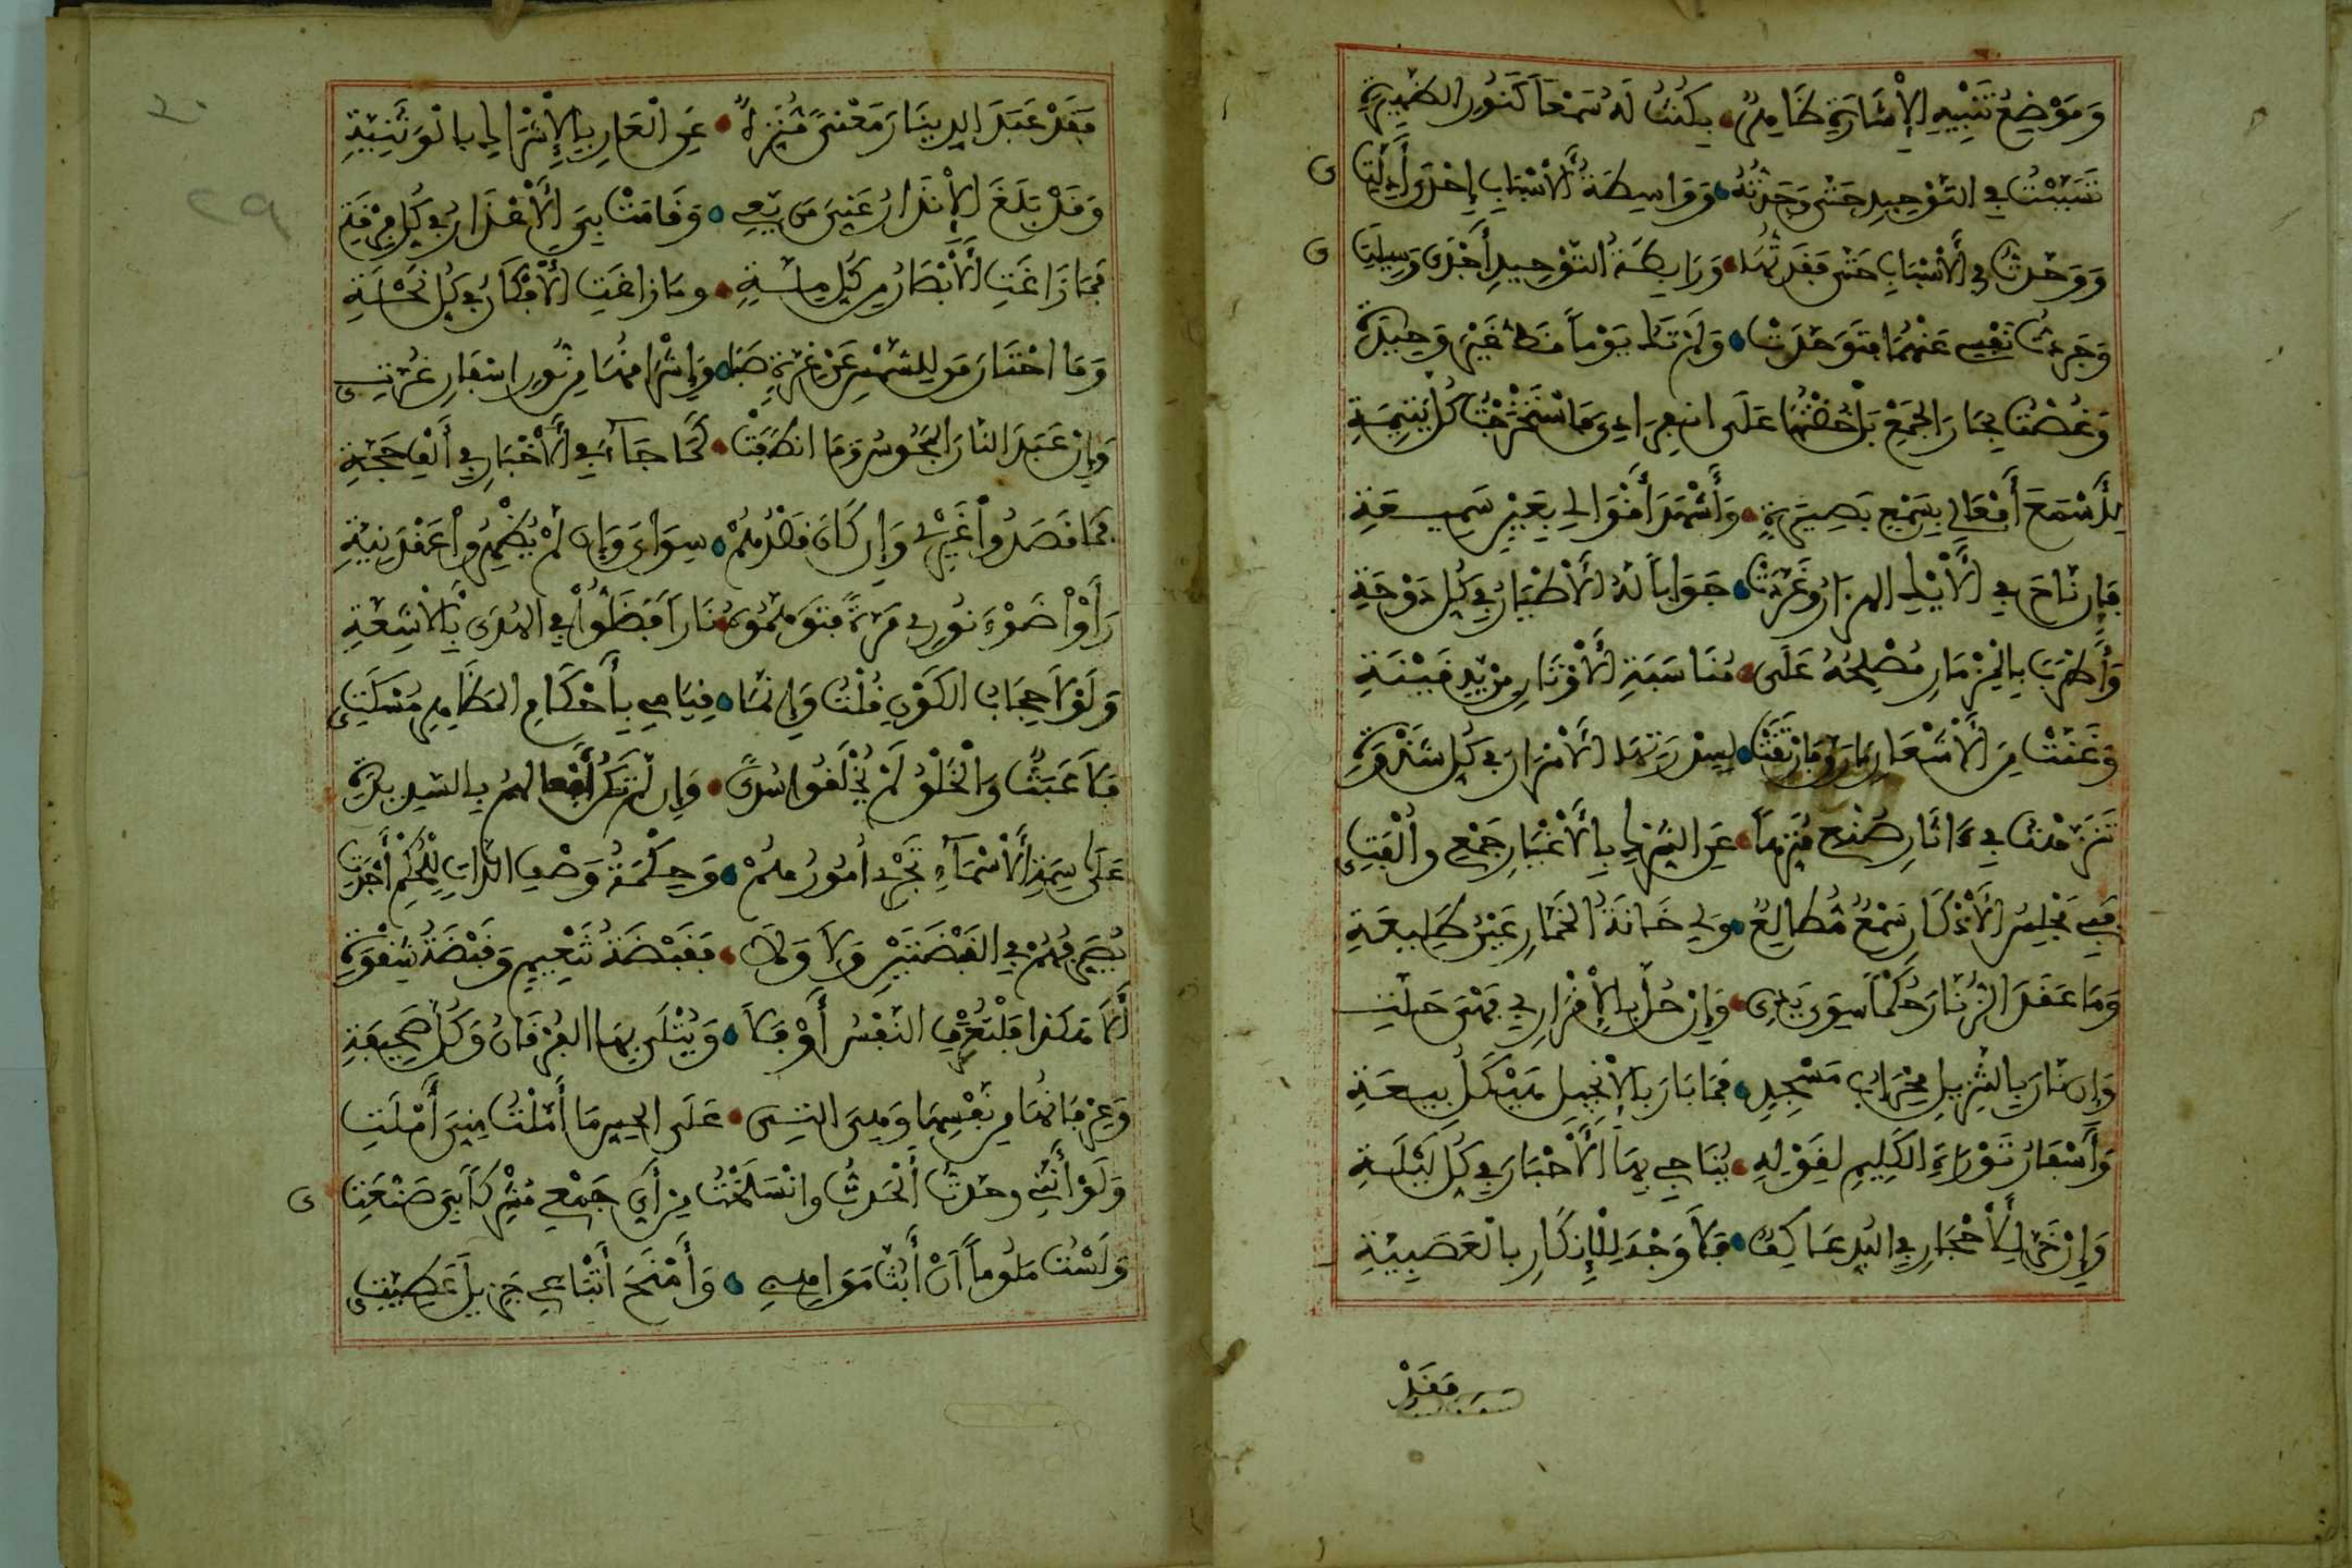 وَمَوْضِعُ تَنْبِيهِ الْإِشَارَةِ ظَاهِرٌ بِكُنْتُ لَهُ سَمْعاً كَنُورِ الظَّهِيرَةِ
تَسَبَّبْتُ فِي التَّوْحِيدِ حَتَّى وَجَدْتُهُ وَوَاسِطَةُ الْأَسْبَابِ إِحْدَى أَدِلَّتِي
وَوَحَّدْتُ فِي الْأَسْبَابِ حَتَّى فَقَدْتُهَا وَرَابِطَةُ التَّوْحِيدِ أَجْدَى وَسِيلَتِي
وَجَرَّدْتُ نَفْسِي عَنْهُمَا فَتَوَحَّدَتْ وَلَمْ تَكُ يَوْماً قَطُّ غَيْرَ وَحِيدَةِ
وَغُصْتُ بِحَارَ الْجَمْعِ بَلْ خُضْتُهَا عَلَى انْفِرَادِي فَاسْتَخْرَجْتُ كُلَّ يَتِيمَةِ
لِأَسْمَعَ أَفْعَالِي بِسَمْعٍ بَصِيرَةٍ وَأَشْهَدَ أَقْوَالِي بِعَيْنٍ سَمِيعَةِ
فَإِنْ نَاحَ فِي الْأَيْكِ الهَزَارُ وَغَرَّدَتْ جَوَاباً لَهُ الْأَطْيَارُ فِي كُلِّ دَوْحَةِ
وَأَطْرَبَ بِالْمِزْمَارِ مُصْلِحُهُ عَلَى مُنَاسَبَةِ الْأَوْتَارِ مِنْ يَدِ قَيْنَةِ
وَغَنَّتْ مِنَ الْأَشْعَارِ مَا رَقَّ فَارْتَقَتْ لِسِدْرَتِهَا الْأَسْرَارُ فِي كُلِّ شَدْوَةِ
تَنَزَّهْتُ فِي ءَاثَارِ صُنْعِي مُنَزِّهاً عَنِ الشِّرْكِ بِالْأَغْيَارِ جَمْعِي وأُلْفَتِي
فَبِي مَجْلِسُ الْأَذْكَارِ سَمْعُ مُطَالِعٍ وَلِي حَانَةُ الْخَمَّارِ عَيْنُ طَلِيعَةِ
وَمَا عَقَدَ الزُّنَّارَ حُكْماً سِوَى يَدِي وَإِنْ حُلَّ بِالْإِقْرَارِ بِي فَهْيَ حَلَّتِ
وَإِنْ نَارَ بِالتَّنْزِيلِ مِحْرَابُ مَسْجِدٍ فَمَا بَارَ بِالْإِنْجِيلِ هَيْكَلُ بِيعَةِ
وَأَسْفَارُ تَوْرَاةِ الْكَلِيمِ لِقَوْمِهِ يُنَاجِي بِهَا الْأَحْبَارُ فِي كُلِّ لَيْلَةِ
وَإِنْ خَرَّ لِلْأَحْجَارِ فِي الْبُدِّ عَاكِفٌ فَلَا وَجْهَ لِلْإِنْكَارِ بِالْعَصَبِيَّةِ
فَقَدْ
فَقَدْ عَبَدَ الدِّينَارَ مَعْنىً مُنَزَّهٌ عَنِ الْعَارِ بِالْإِشْرَاكِ بِالْوَثَنِيَّةِ
وَقَدْ بَلَغَ الْإِنْذَارُ عَنِّيَ مَنْ يَعِي وَقَامَتْ بِيَ الْأَعْذَارُ فِي كُلِّ فِرْقَةِ
فَمَا زَاغَتِ الْأَبْصَارُ مِنْ كُلِّ مِلَّةٍ وَمَا زَاغَتِ الْأَفْكَارُ فِي كُلِّ نِحْلَةِ
وَمَا احْتَارَ مَنْ لِلشَّمْسِ عَنْ غِرَّةٍ صَبَا وَإِشْرَاقُهَا مِنْ نُورِ إِسْفَارِ غُرَّتِي
وَإِنْ عَبَدَ النَّارَ الْمَجُوسُ وَمَا انْطَفَتْ كَمَا جَاءَ فِي الْأَخْبَارِ فِي أَلْفِ حِجَّةِ
فَمَا قَصَدُوا غَيْرِي وَإِنْ كَانَ قَصْدُهُمْ سِوَايَ وَإِنْ لَمْ يُظْهِرُوا عَقْدَ نِيَّةِ
رَأَوْا ضَوْءَ نُورِي مَرَّةً فَتَوَهَّمُوهُ نَاراً فَضَلُّوا فِي الْهُدَى بِالْأَشِعَّةِ
وَلَوْلَا حِجَابُ الْكَوْنِ قُلْتُ وَإِنَّمَا قِيَامِي بِأَحْكَامِ الْمَظَاهِرِ مُسْكِتِي
فَلَا عَبَثٌ وَالْخَلْقُ لَمْ يُخْلَقُوا سُدىً وَإِنْ لَمْ تَكُنْ أَفْعَالُهُمْ بِالسَّدِيدَةِ
عَلَى سِمَةِ الْأَسْمَاءِ تَجْرِي أُمُورُهُمْ وَحِكْمَةُ وَصْفِ الذَّاتِ لِلْحُكْمِ أَجْرَتِ
يُصَرِّفُهُمْ فِي الْقَبْضَتَيْنِ وَلَا وَلَا فَقَبْضَةُ تَنْعِيمٍ وَقَبْضَةُ شِقْوَةِ
أَلَا هَكَذَا فَلْتَعْرِفِ النَّفْسُ أَوْ فَلَا وَيُتْلَى بِهَا الْفُرْقَانُ وَكُلُّ صَحِيفَةِ
وَعِرْفَانُهَا مِنْ نَفْسِهَا وَهِيَ الَّتِي عَلَى الْحِسِّ مَا أَمَّلْتُ مِنِّيَ أَمْلَتِ
وَلَوْ أَنَّنِي وَحَّدْتُ أَلْحَدْتُ وانْسَلَخْتُ مِنْ آيِ جَمْعِي مُشْرِكاً بِيَ صَنْعَتِي
وَلَسْتُ مَلُوماً أَنْ أَبُثَّ مَوَاهِبِي وَأَمْنَحَ أَتْبَاعِي جَزِيلَ عَطِيَّتِي